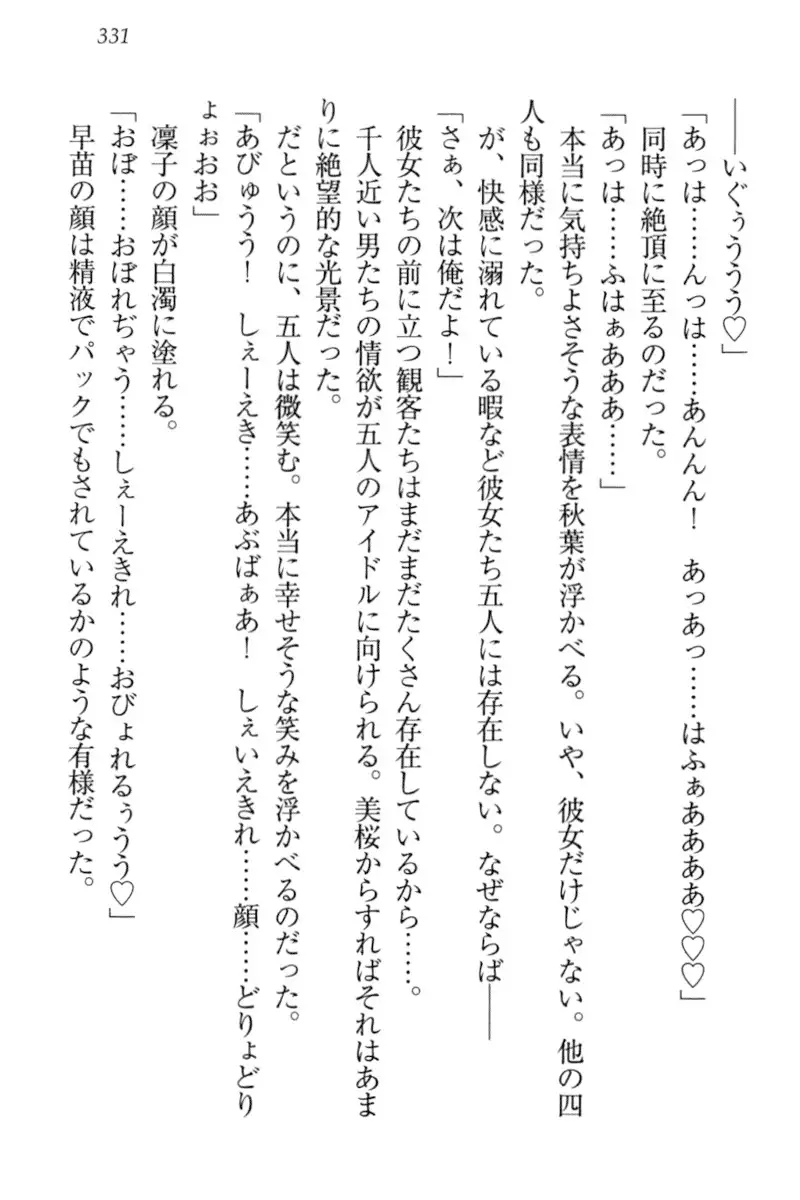 331
――いぐぅううう♡」
「あっは……んっは……あんんん！　あっあっ……はふぁああああ♡♡♡」
同時に絶頂に至るのだった。
「あっは……ふはぁあああ……」
本当に気持ちよさそうな表情を秋葉が浮かべる。いや、彼女だけじゃない。他の四
人も同様だった。
が、快感に溺れている暇など彼女たち五人には存在しない。なぜならば――
「さぁ、次は俺だよ！」
彼女たちの前に立つ観客たちはまだまだたくさん存在しているから……。
千人近い男たちの情欲が五人のアイドルに向けられる。美桜からすればそれはあま
りに絶望的な光景だった。
だというのに、五人は微笑む。本当に幸せそうな笑みを浮かべるのだった。
「あびゅうう！　しぇーえき……あぶばぁあ！　しぇいえきれ……顔……どりょどり
ょぉおお」
凜子の顔が白濁に塗れる。
「おぼ……おぼれぢゃう……しぇーえきれ……おびょれるぅうう♡」
早苗の顔は精液でパックでもされているかのような有様だった。